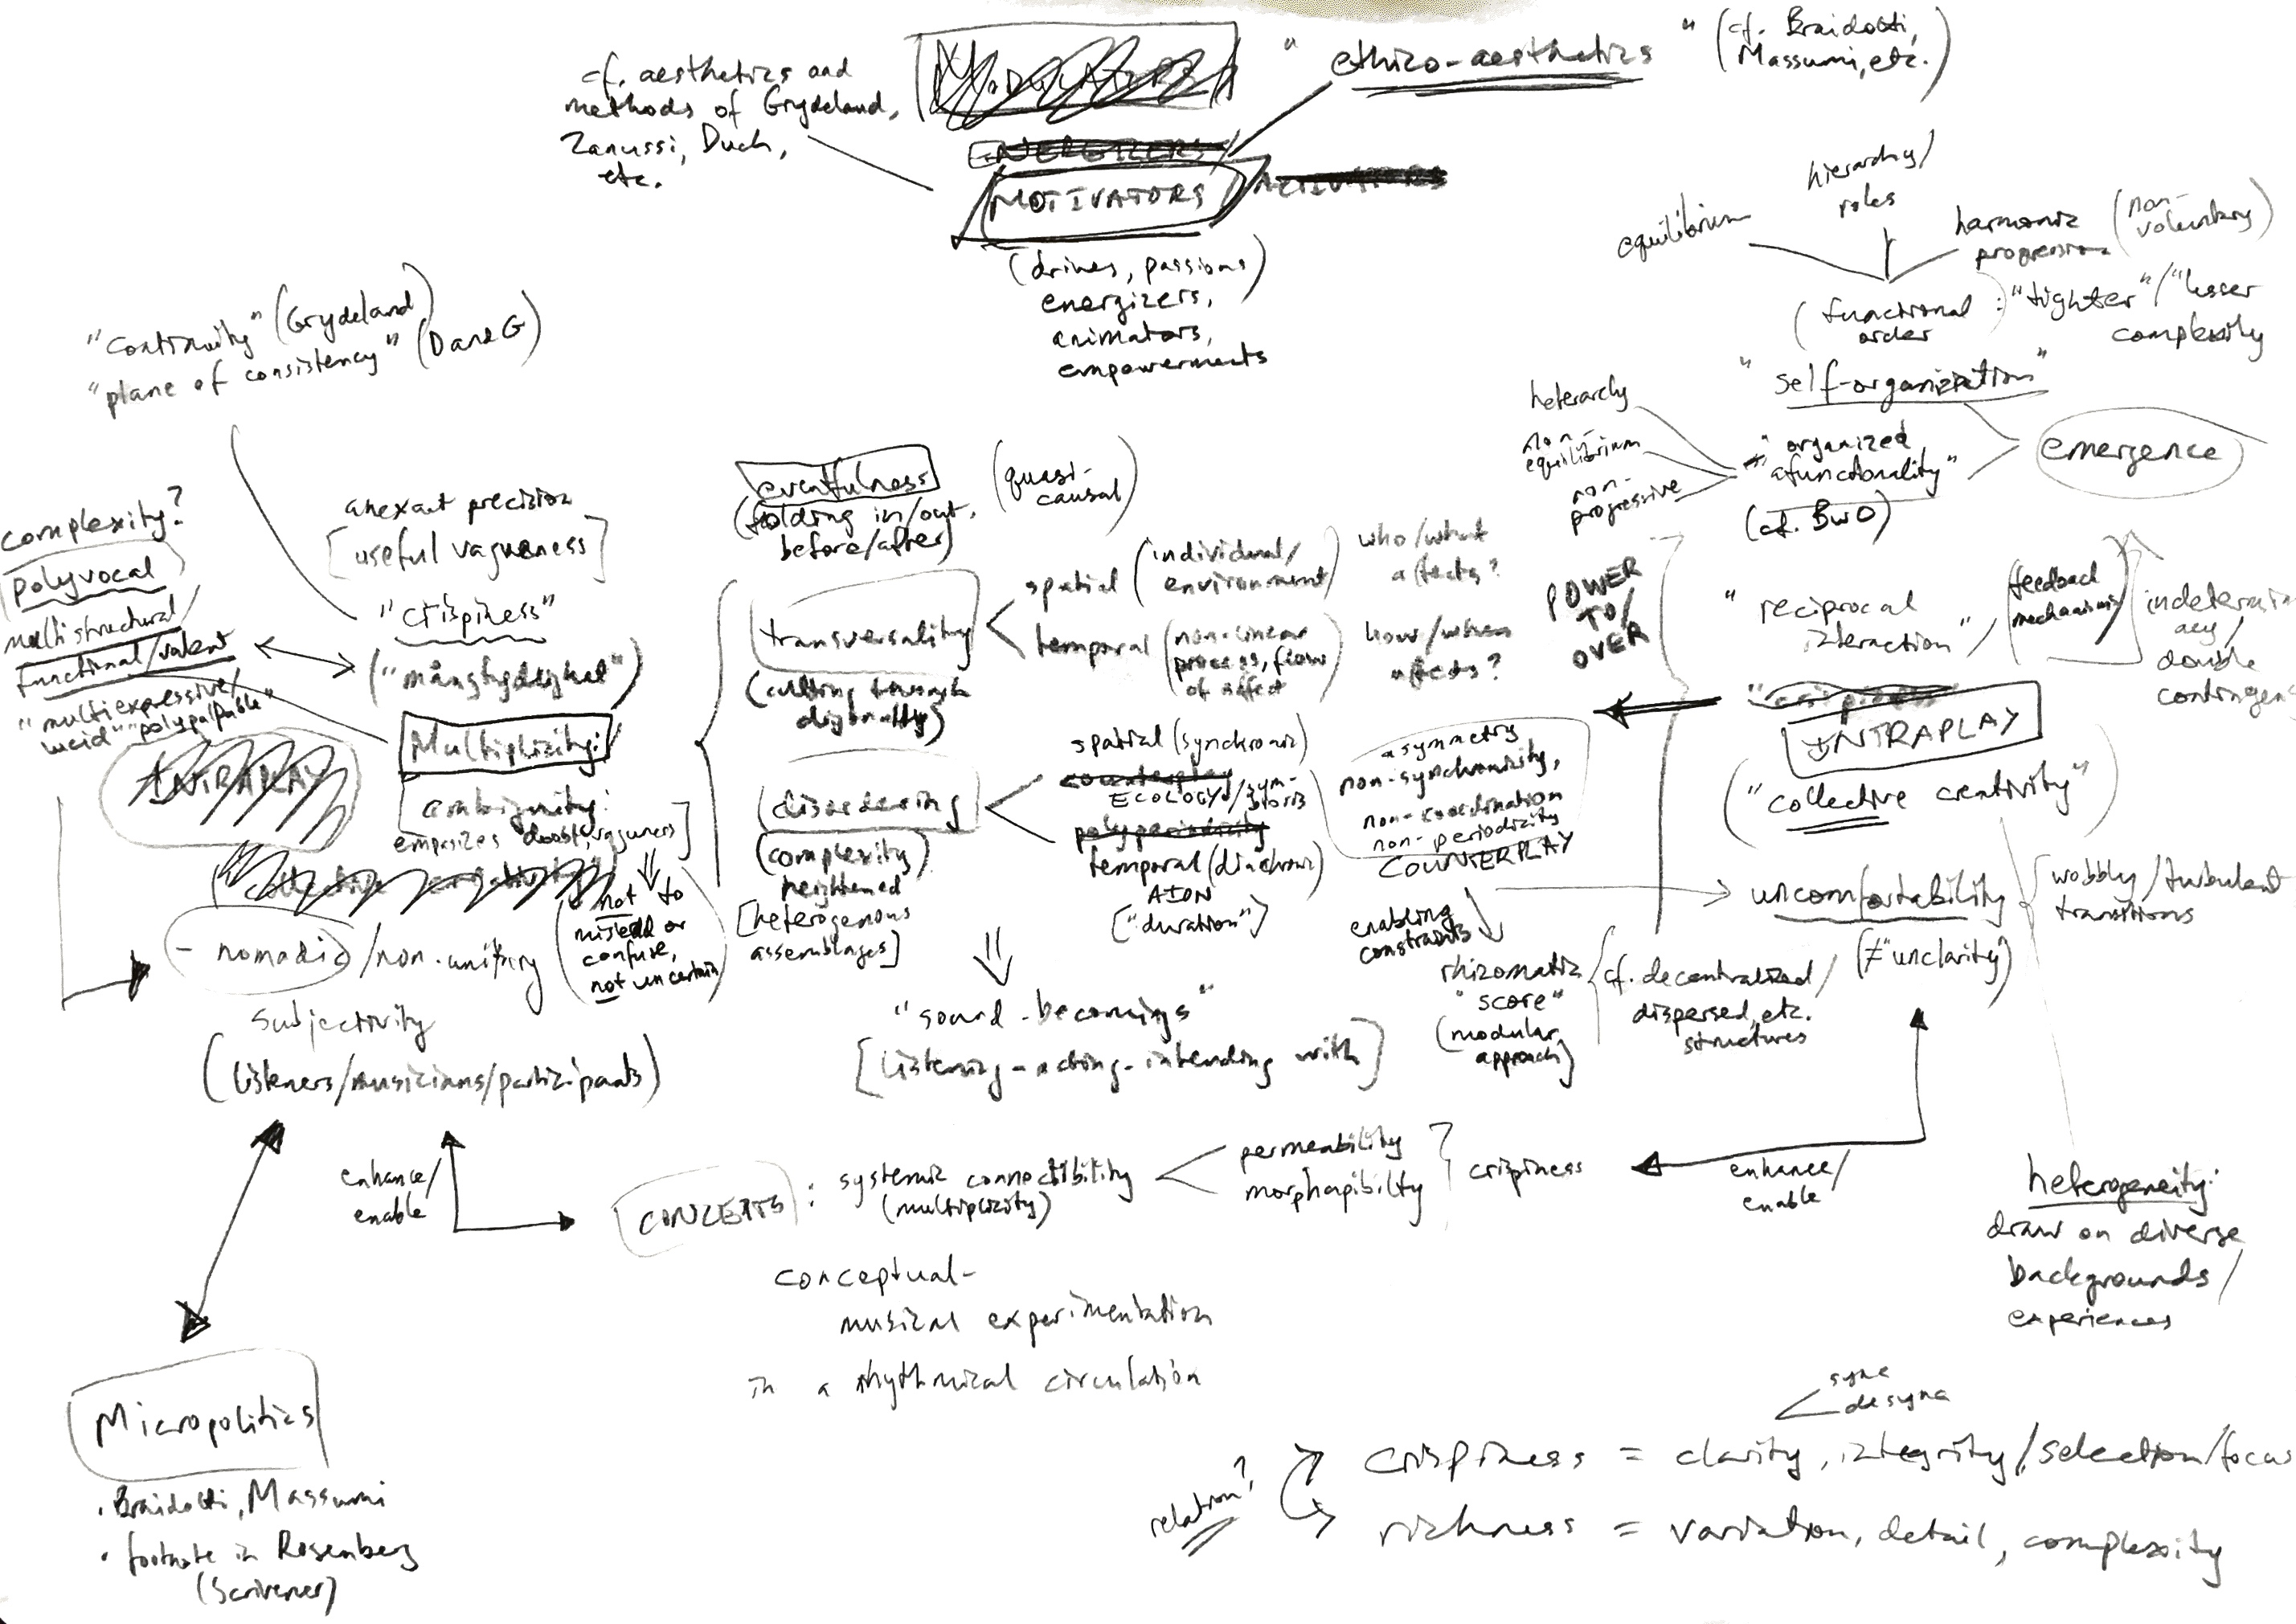 cf. aesthetics and
methods of Grydeland,
Zanussi, Duch,
etc.
ENERGIZERS
MOTIVATORS / ACTIVATORS
(drives, passions)
energizers,
animators,
empowerments
"ethico-aesthetics" (cf. Braidotti,
Massumi, etc.)
equilibrium
hierarchy/
roles
harmonic
progression
(non-
voluntary)
(functional
order
: "tighter"/"lesser
complexity
"self-organization"
heterarchy
non-
equilibrium
non-
progressive
"organized
afunctionality"
(cf. BwO)
emergence
"continuity" (Grydeland)
"plane of consistency" (D and G)
complexity?
polyvocal
multistructural/
functional/valent
"multiexpressive/
"polypalpable"
anexact precision
[useful vagueness]
"crispiness"
("mångtydighet")
INTRAPLAY
Multiplicity:
ambiguity:
empasizes doubt, vagueness]
(not to
mislead or
confuse,
not uncertain)
- nomadic/non-unitary
subjectivity
(listeners/musicians/participants)
eventfulness
(folding in/out,
before/after)
(quasi-
causal)
transversality
(cutting through
diagonally)
spatial (individual/
environment)
who/what
affects?
temporal (non-linear
process, flow
of affect
how/when
affects?
POWER
TO/
OVER
disordering
(complexity)
heightened
[heterogenous
assemblages]
spatial (synchronic)
counterplay
ECOLOGY/sym-
biosis
polyperiodicity
temporal (diachronic)
AION
["duration"]
asymmetry
non-synchronicity,
non-coordination
non-periodicity
COUNTERPLAY
"reciprocal
interaction"/
(feedback
mechanisms)
indetermin
acy/
double
contingen
"crispiness"
INTRAPLAY
("collective creativity")
uncomfortability
(≠ "unclarity")
wobbly/turbulent
transitions
enabling
constraints
rhizomatic
"score"
(modular
approach)
cf. decentralized/
dispersed, etc.
structures
"sound-becomings"
[listening-acting-intending with]
enhance/
enable
CONCEPTS: systemic connectibility
(multiplicity)
permeability
morphapibility
crispiness
enhance/
enable
conceptual-
musical experimentation
in a rhythmical circulation
heterogeneity:
draw on diverse
backgrounds/
experiences
Micropolitics
• Braidotti, Massumi
• footnote in Rosenberg
(Scrivener)
sync
desync
relation?
crispiness = clarity, integrity/selection/focus
richness = variation, detail, complexity